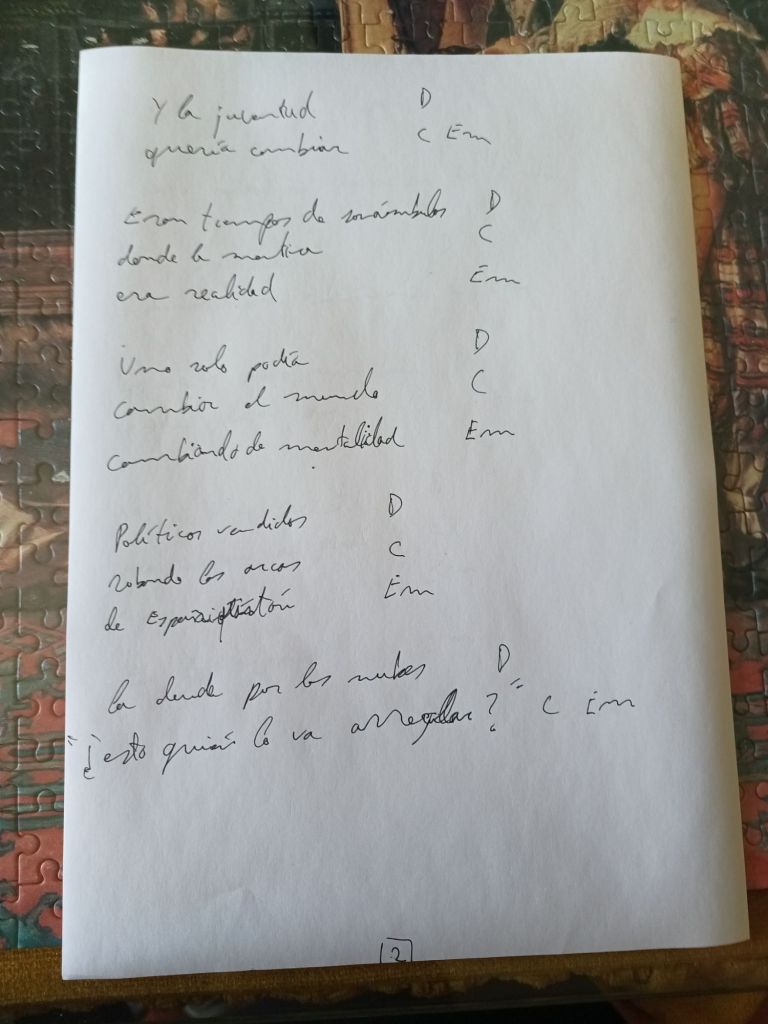 Y la juventud D
quería cambiar C Em
Eran tiempos de sonámbulos D
donde la mentira C
era realidad Em
Uno solo podía D
cambiar el mundo C
cambiando de mentalidad Em
Políticos vendidos D
robando las arcas C
de Em
la deuda por las nubes D
"¿esto quién lo va arreglar?" C Em
2